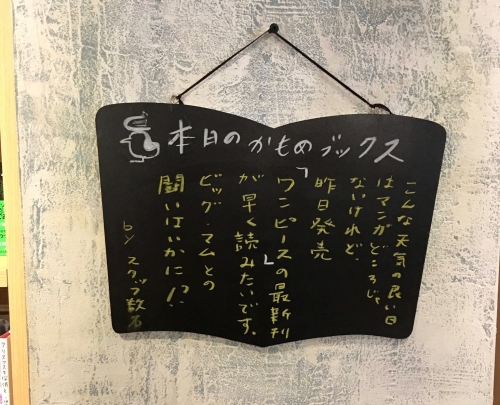 本日のかもめブックス
こんな天気の良い日
はマンガどころじゃ
ないけれど、
昨日発売
「ワンピース」の最新刊
が早く読みたいです。
ビッグ・マムとの
闘いはいかに!?
by スタッフ